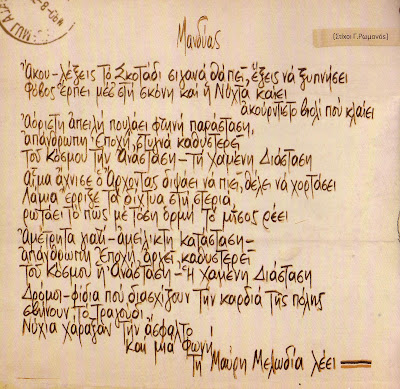 Μανδύας
(Στίχοι Γ.Ρωμανός)
Άκου-λέξεις το Σκοτάδι σιγανά θα πεί, έξεις να ξυπνήσει
Φόβος έρπει μές στη σκόνη και η Νύχτα καίει
ακούρντιστο βιολί που κλαίει
Αόριστη απειλή πουλάει φτηνή παράσταση,
απάνθρωπη Εποχή, στυγνά καθυστερεί
Του Κόσμου την Ανάσταση-τη χαμένη Διάσταση
Αίμα άχνισε ο Άρχοντας διψάει να πιεί, θέλει να χορτάσει
Λάμια έρριξε τα δίχτυα στη στεριά,
ρωτάει το πως με τόση ορμή το μίσος ρέει
Αμέτρητα γιατί-αμείλικτη κατάσταση-
απάνθρωπη Εποχή, άρχει, καθυστερεί
Του Κόσμου η Ανάσταση-Η χαμένη Διάσταση
Δρόμοι-φίδια που διασχίζουν την καρδιά της πόλης
σβήνουν το Τραγούδι
Νύχια χάραξαν την άσφαλτο
και μια φωνή
τη Μαύρη Μελωδία λέει